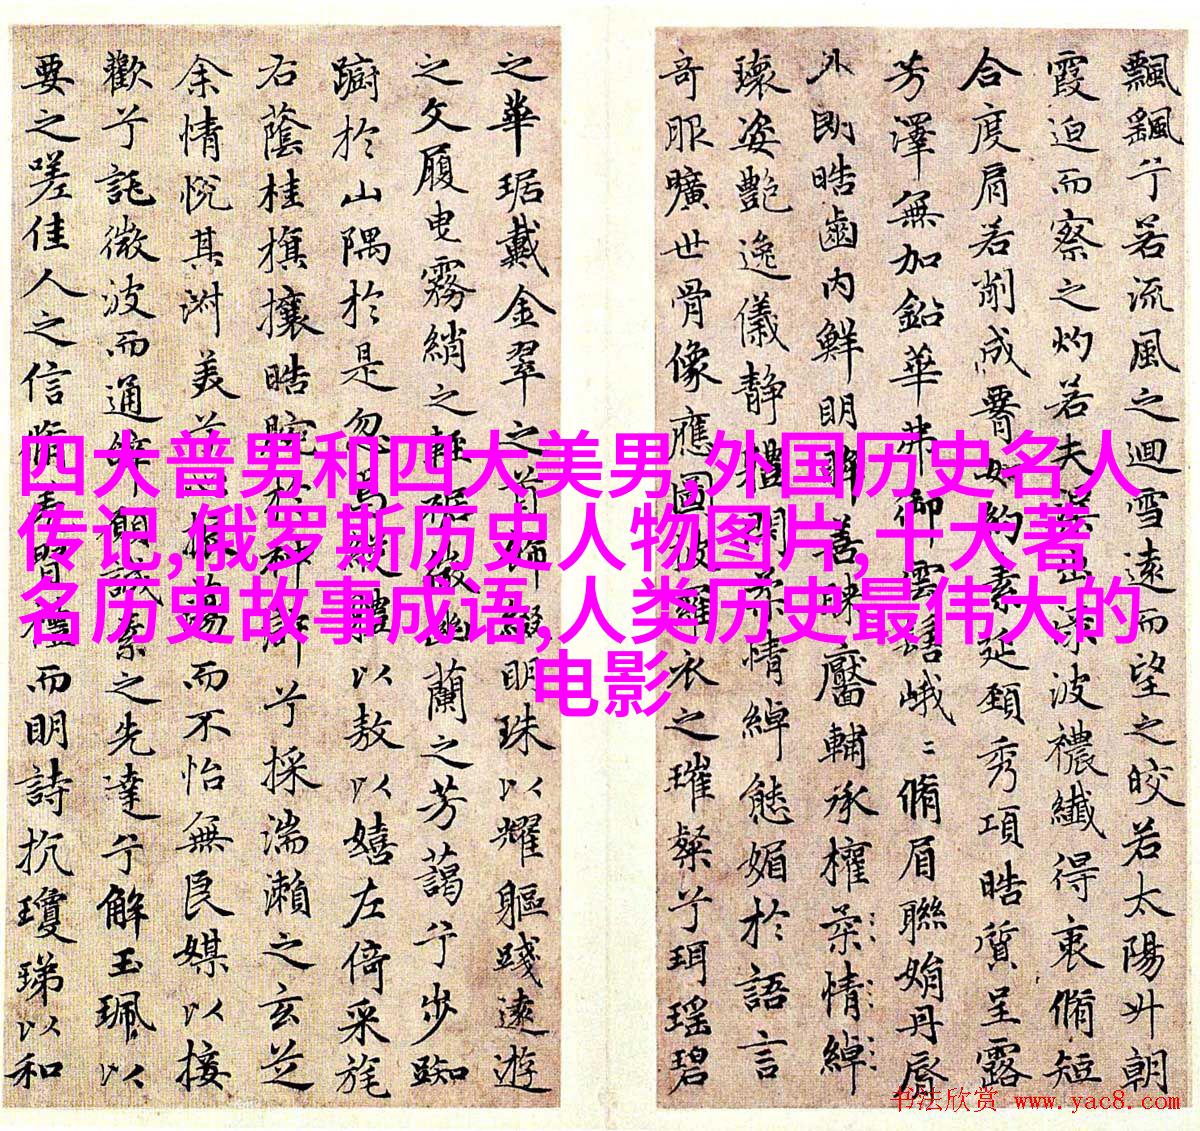 飄飖兮若流風之迴雪遠而望之皎若太陽升朝
霞迫而察之灼若夫渠出淥波襛纖得衷脩短
合度肩若削成䁥如約素延頸秀項皓質呈露
芳澤無加鉛華弗御雲髻峨〻脩眉聯娟丹脣
外朗皓齒内鮮明眸善睞靨輔承權柔情綽
瓌姿艷逸儀静體閑柔情綽態媚於語言
奇服曠世骨像應圖披羅衣之璀粲兮珥瑶碧
之華琚戴金翠之首飾綴明珠以耀軀踐遠遊
之文履曳霧綃之輕裾微幽蘭之芳藹兮步踟
蹰於山隅於是忽焉縱體以敖以嬉左倚采旄
右蔭桂旗攘皓腕於神滸兮採湍瀨之玄芝
余情悅其淑美兮心振蕩而不怡無良媒以接
歡兮託微波而通辭願誠素之先達兮解玉珮以
要之嗟佳人之信脩羌習禮而明詩抗瓊珶以和
四大普男和四大美男,外国历史名人
传记,俄罗斯历史人物图片,十大著
名历史故事成语,人类历史最伟大的
电影
书法欣赏 www.yac8.com